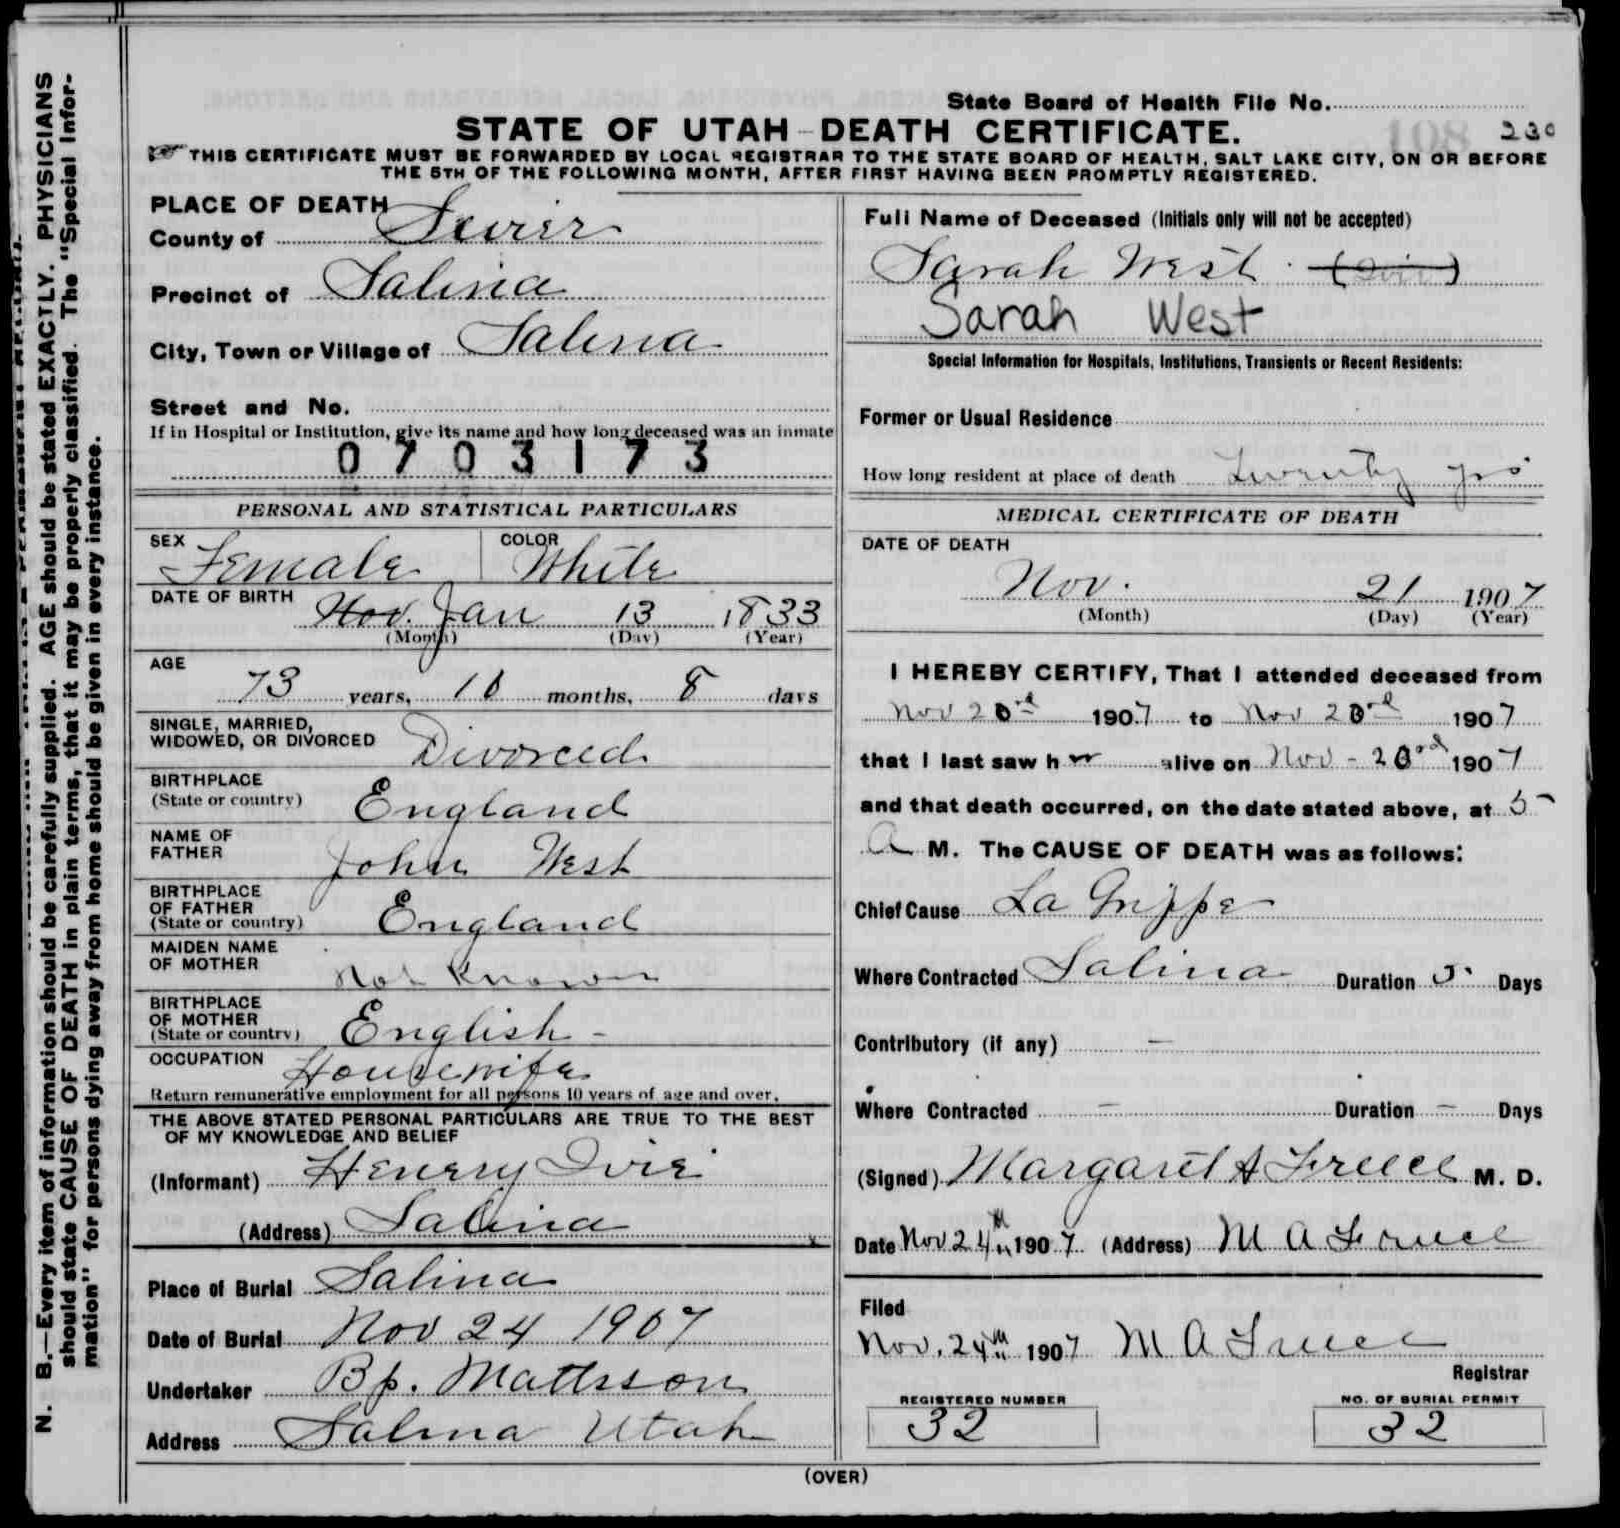 State Board of Health File No.
STATE OF UTAH—DEATH CERTIFICATE. 108 230
THIS CERTIFICATE MUST BE FORWARDED BY LOCAL REGISTRAR TO THE STATE BOARD OF HEALTH, SALT LAKE CITY, ON OR BEFORE
THE 5TH OF THE FOLLOWING MONTH, AFTER FIRST HAVING BEEN PROMPTLY REGISTERED.
N. B.—Every item of information should be carefully supplied. AGE should be stated EXACTLY. PHYSICIANS
should state CAUSE OF DEATH in plain terms, that it may be properly classified. The "Special Infor-
mation" for persons dying away from home should be given in every instance.
PLACE OF DEATH
County of Sevier
Precinct of Salina
City, Town or Village of Salina
Street and No.
If in Hospital or Institution, give its name and how long deceased was an inmate
0703173
PERSONAL AND STATISTICAL PARTICULARS
SEX Female COLOR White
DATE OF BIRTH Nov. Jan 13 1833
(Month) (Day) (Year)
AGE
73 years, 10 months, 8 days
SINGLE, MARRIED,
WIDOWED, OR DIVORCED Divorced
BIRTHPLACE
(State or country) England
NAME OF
FATHER John West
BIRTHPLACE
OF FATHER
(State or country) England
MAIDEN NAME
OF MOTHER Not Known
BIRTHPLACE
OF MOTHER
(State or country) English -
OCCUPATION Housewife
Return remunerative employment for all persons 10 years of age and over.
THE ABOVE STATED PERSONAL PARTICULARS ARE TRUE TO THE BEST
OF MY KNOWLEDGE AND BELIEF
(Informant) Henery Ivie
(Address) Salina
Place of Burial Salina
Date of Burial Nov 24 1907
Undertaker Bp. Mattsson
Address Salina Utah
Full Name of Deceased (Initials only will not be accepted)
Sarah West (Ivie)
Sarah West
Special Information for Hospitals, Institutions, Transients or Recent Residents:
Former or Usual Residence
How long resident at place of death Twenty yrs
MEDICAL CERTIFICATE OF DEATH
DATE OF DEATH
Nov. 21 1907
(Month) (Day) (Year)
I HEREBY CERTIFY, That I attended deceased from
Nov 20rd 1907 to Nov 20rd 1907
that I last saw her alive on Nov - 20rd 1907
and that death occurred, on the date stated above, at 5
A M. The CAUSE OF DEATH was as follows:
Chief Cause La Grippe
Where Contracted Salina Duration 5 Days
Contributory (if any) —
Where Contracted — Duration — Days
(Signed) Margaret A Freece M. D.
Date Nov 24th 1907 (Address) M A Freece
Filed
Nov. 24th 1907 M A Freece
Registrar
REGISTERED NUMBER
32
NO. OF BURIAL PERMIT
32
(OVER)